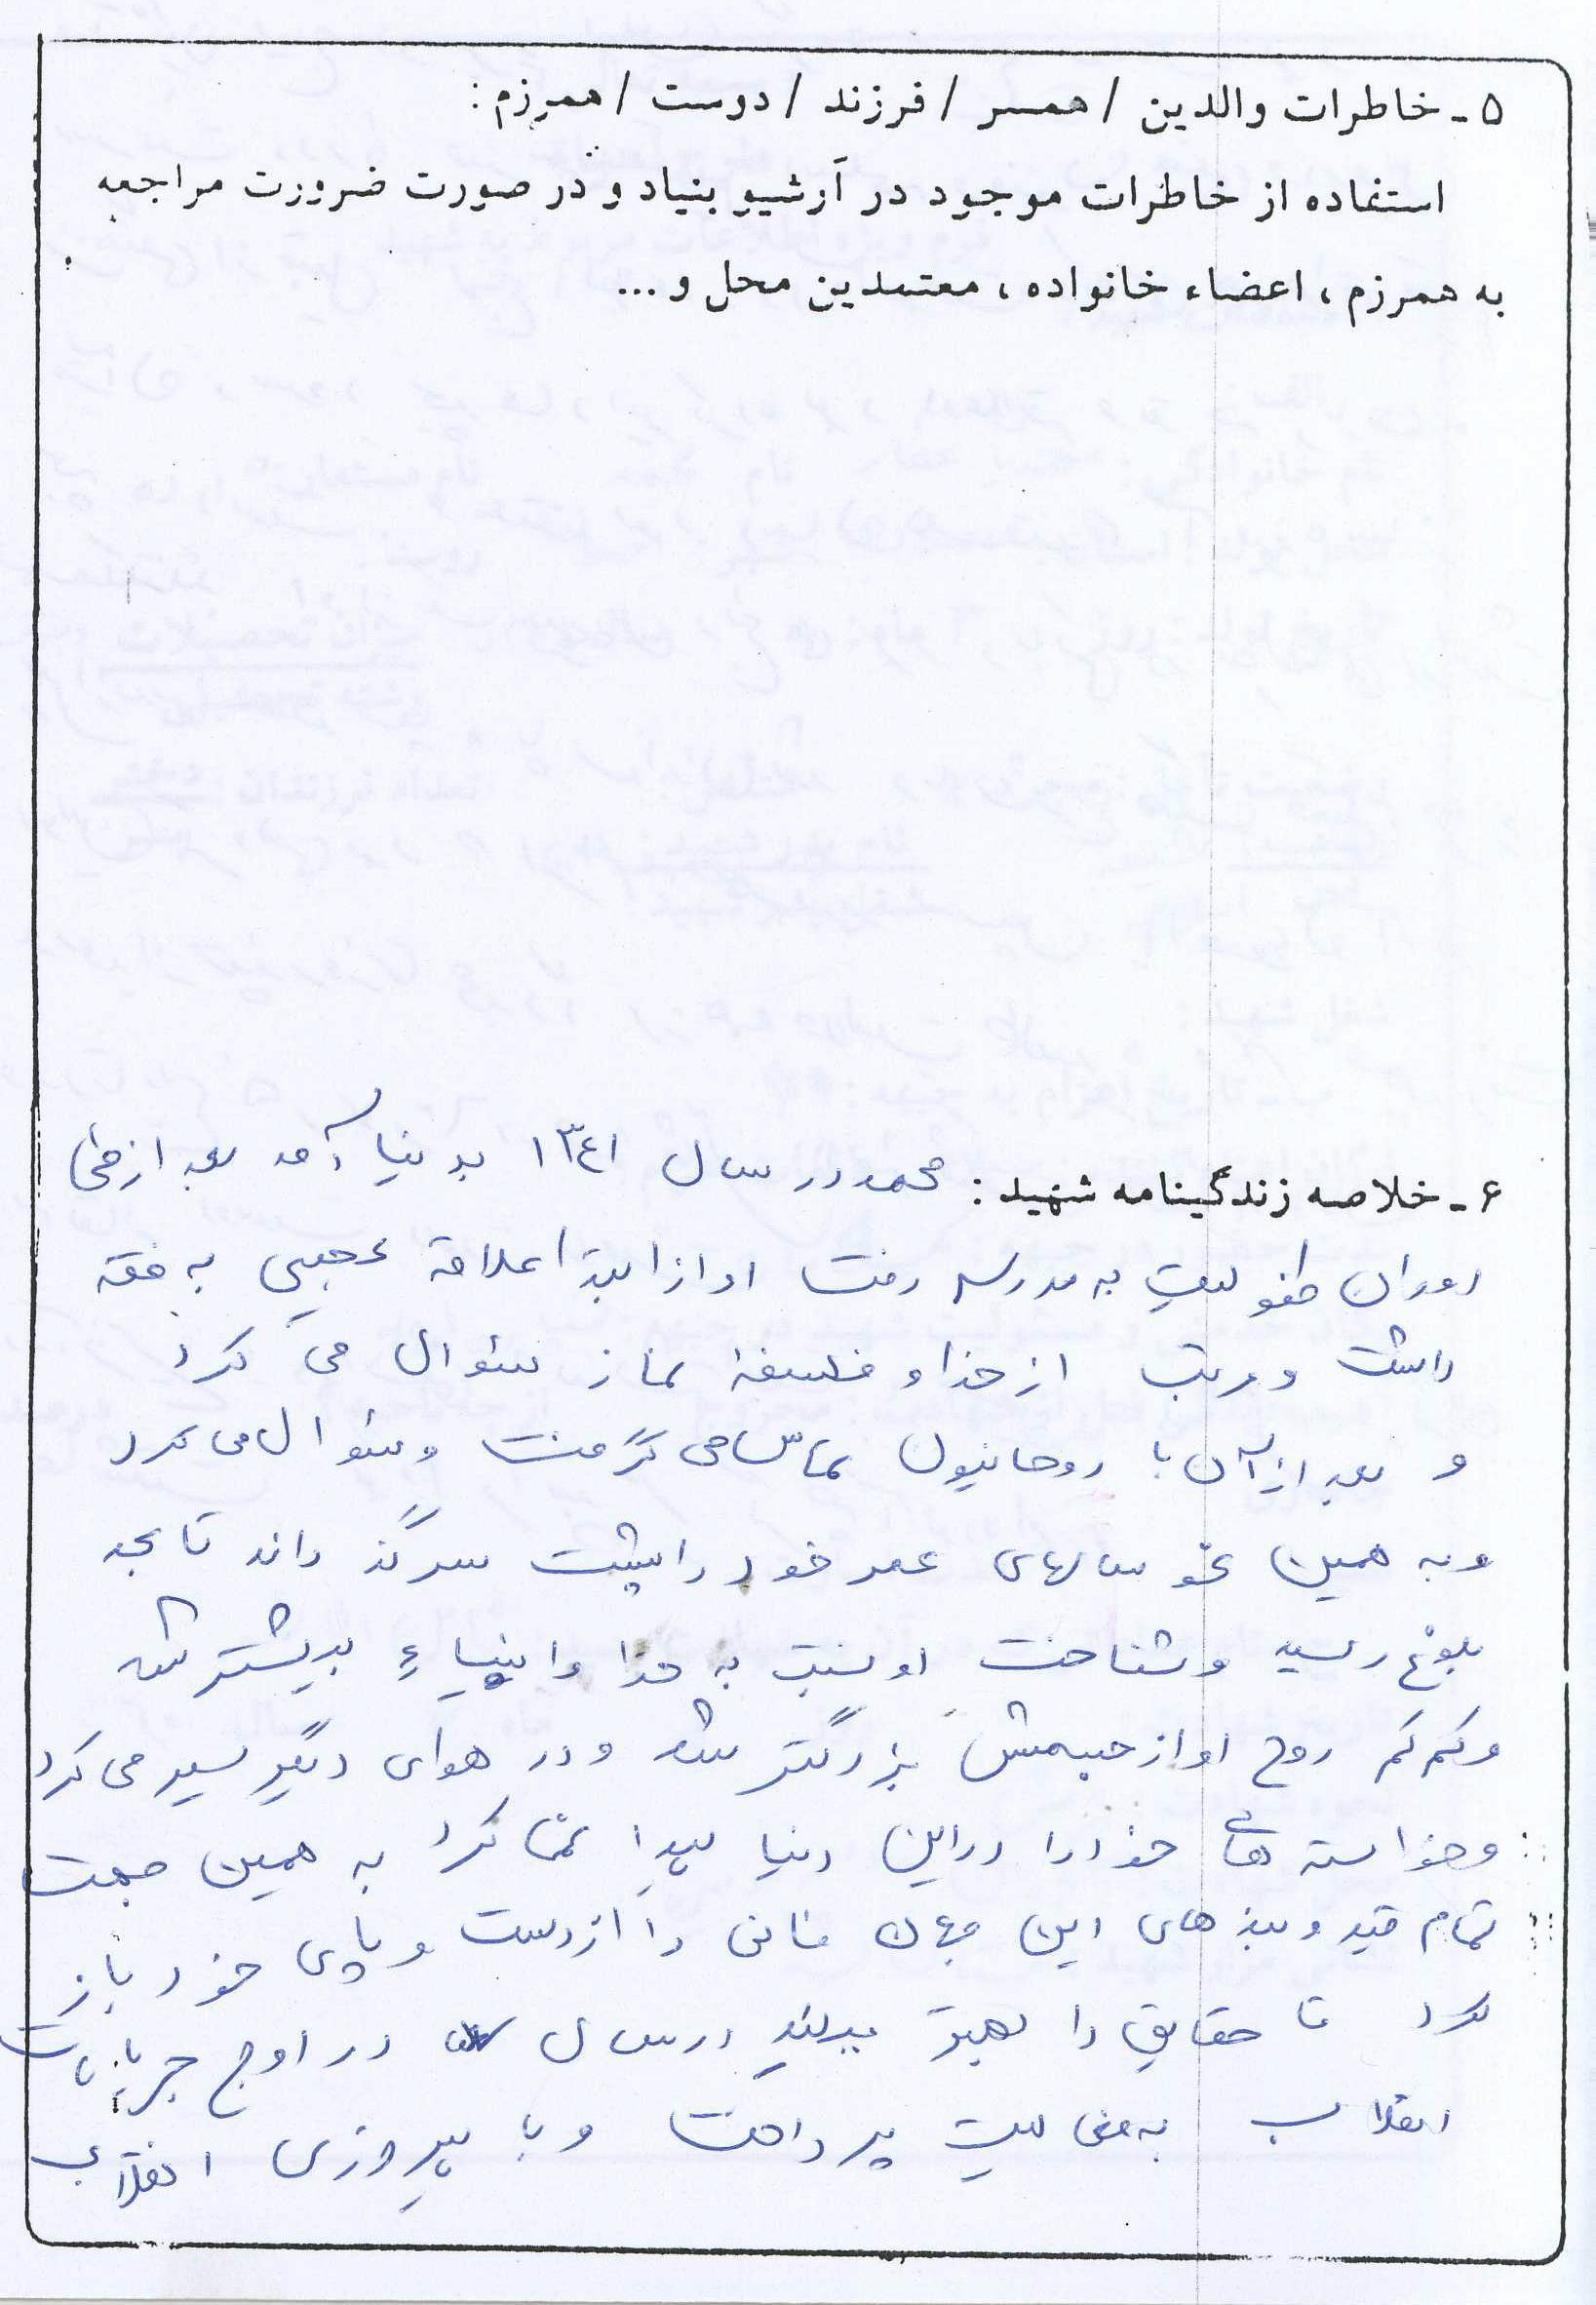 ۵ - خاطرات والدین / همسر / فرزند / دوست / همرزم :
استفاده از خاطرات موجود در آرشیو بنیاد و در صورت ضرورت مراجعه
به همرزم ، اعضاء خانواده ، معتمدین محل و ...
۶ - خلاصه زندگینامه شهید : محمد در سال ۱۳٤۱ بدنیا آمد بعد از طی
دوران طفولیت به مدرسه رفت او از ابتدا علاقه عجیبی به فقه
داشت و مرتب از خدا و فلسفۀ نماز سئوال می کرد
و بعد از آن با روحانیون تماس می گرفت و سئوال می کرد
و به همین نحو سالهای عمر خود را پشت سر گذراند تا بحد
بلوغ رسید و شناخت او نسبت به خدا و انبیاء بیشتر شد
و کم کم روح او از جسمش بزرگتر شد و در هوای دیگر سیر می کرد
و خواسته های خود را در این دنیا پیدا نمی کرد به همین جهت
تمام قید و بندهای این جهان فانی را از دست و پای خود باز
کرد تا حقایق را بهتر ببیند در سال در اوج جریانات
انقلاب به فعالیت پرداخت و با پیروزی انقلاب